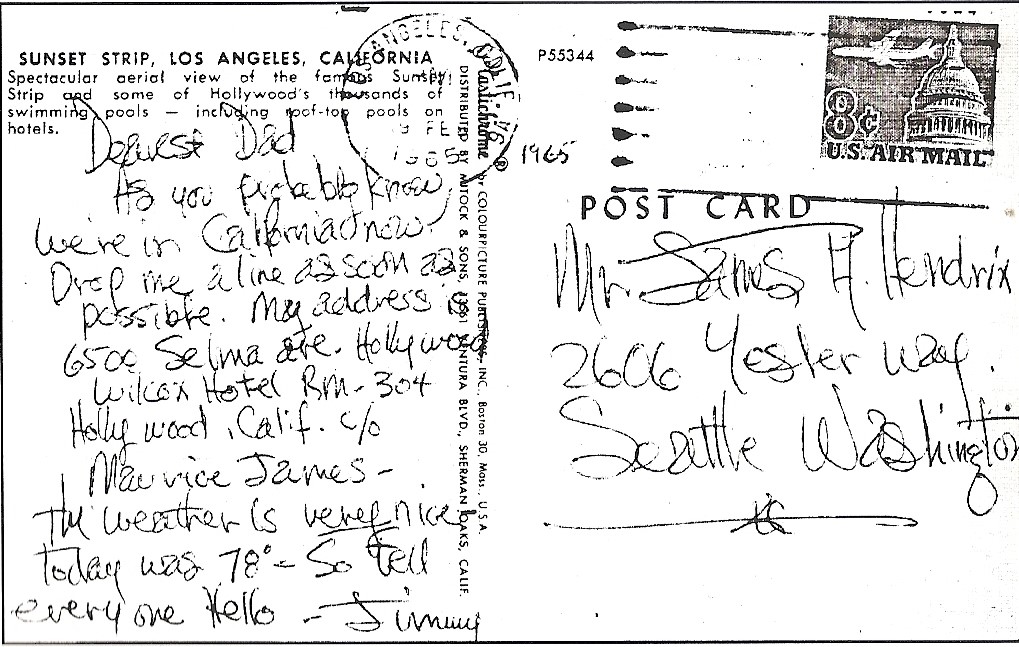 SUNSET STRIP, LOS ANGELES, CALIFORNIA
Spectacular aerial view of the famous Sunset
Strip and some of Hollywood's thousands of
swimming pools — including roof-top pools on
hotels.
Dearest Dad
As you probably know
we're in California now
Drop me a line as soon as
possible. My address is
6500 Selma ave. Hollywood
Wilcox Hotel Rm-304
Hollywood, Calif. c/o
Maurice James -
The weather is very nice
today was 78° - So tell
everyone Hello - Jimmy
ANGELES, CALIF.
FE
1965
Plastichrome ® by COLOURPICTURE PUBLISHERS, INC., Boston 30, Mass., U.S.A.
DISTRIBUTED BY MITOCK & SONS, VENTURA BLVD., SHERMAN OAKS, CALIF.
1965
P55344
8¢
U.S. AIR MAIL
POST CARD
Mr. James A. Hendrix
2606 Yesler way.
Seattle Washington